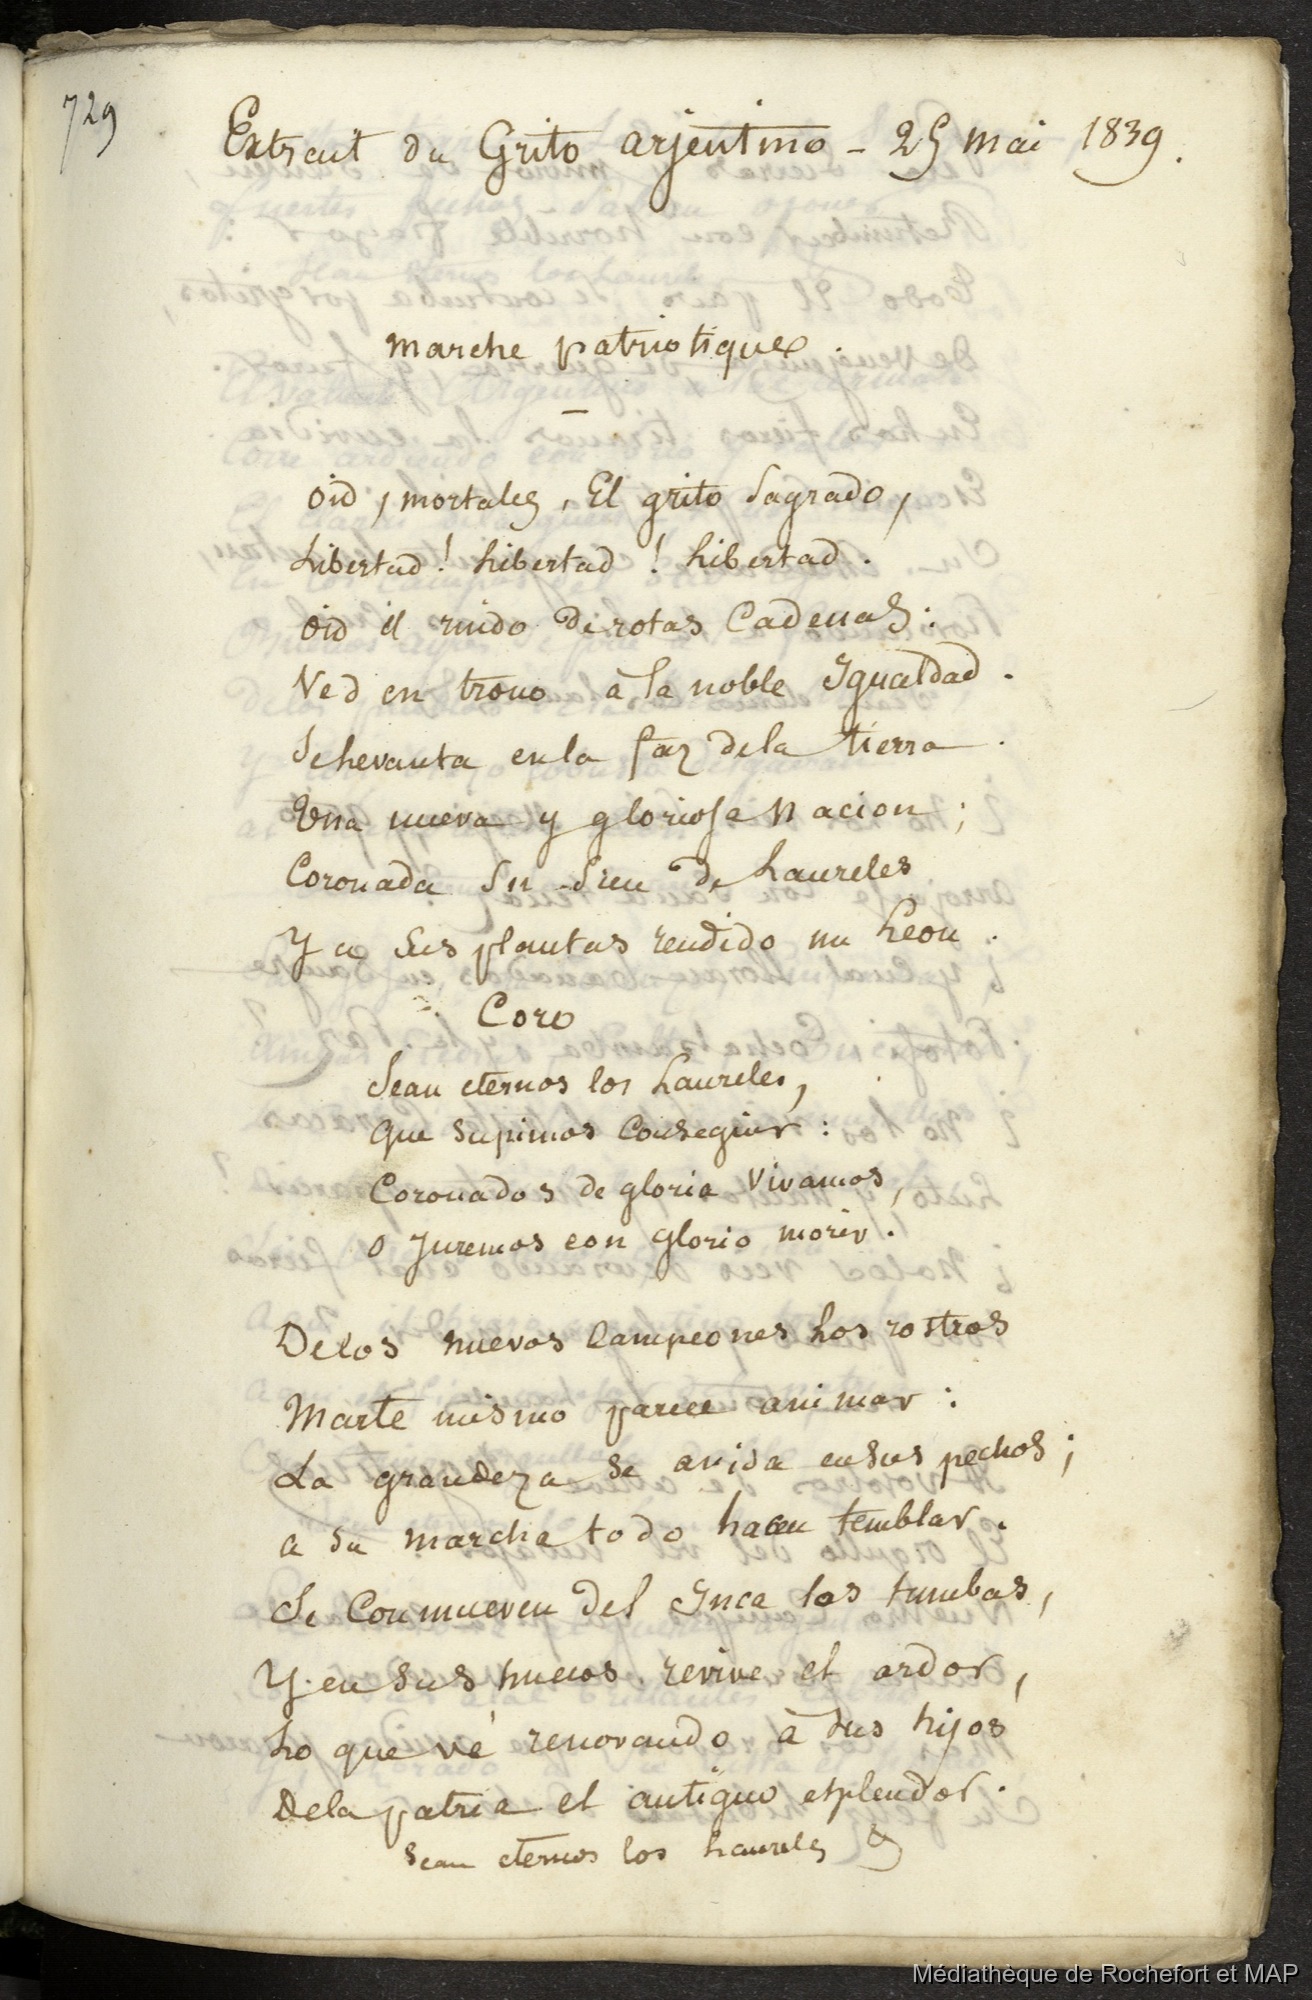 729
Extrait du Grito arjentino - 25 mai 1839.
marche patriotique.
Oid, mortales, El grito Sagrado,
Libertad! Libertad! Libertad.
Oid il ruido de rotas Cadenas:
Ved en trono à la noble Igualdad.
Se Levanta en la faz de la tierra.
Una nueva y gloriosa Nacion;
Coronada Su Sien de Laureles
Y a Sus plantas rendido un Leon.
Coro
Sean eternos los Laureles,
Que supimos Conseguir:
Coronados de gloria Vivamos,
O Juremos con glorio morir.
De los nuevos Campeones Los rostros
Marte mismo parece animar:
La grandeza se anida en sus pechos;
a su marcha todo hacen temblar.
Se Conmueven del Ynca las tumbas,
Y en sus huecos revive el ardor,
Lo que vé renovando à sus hijos
De la patria el antiguo esplendor.
Sean eternos los Laureles &
Médiathèque de Rochefort et MAP